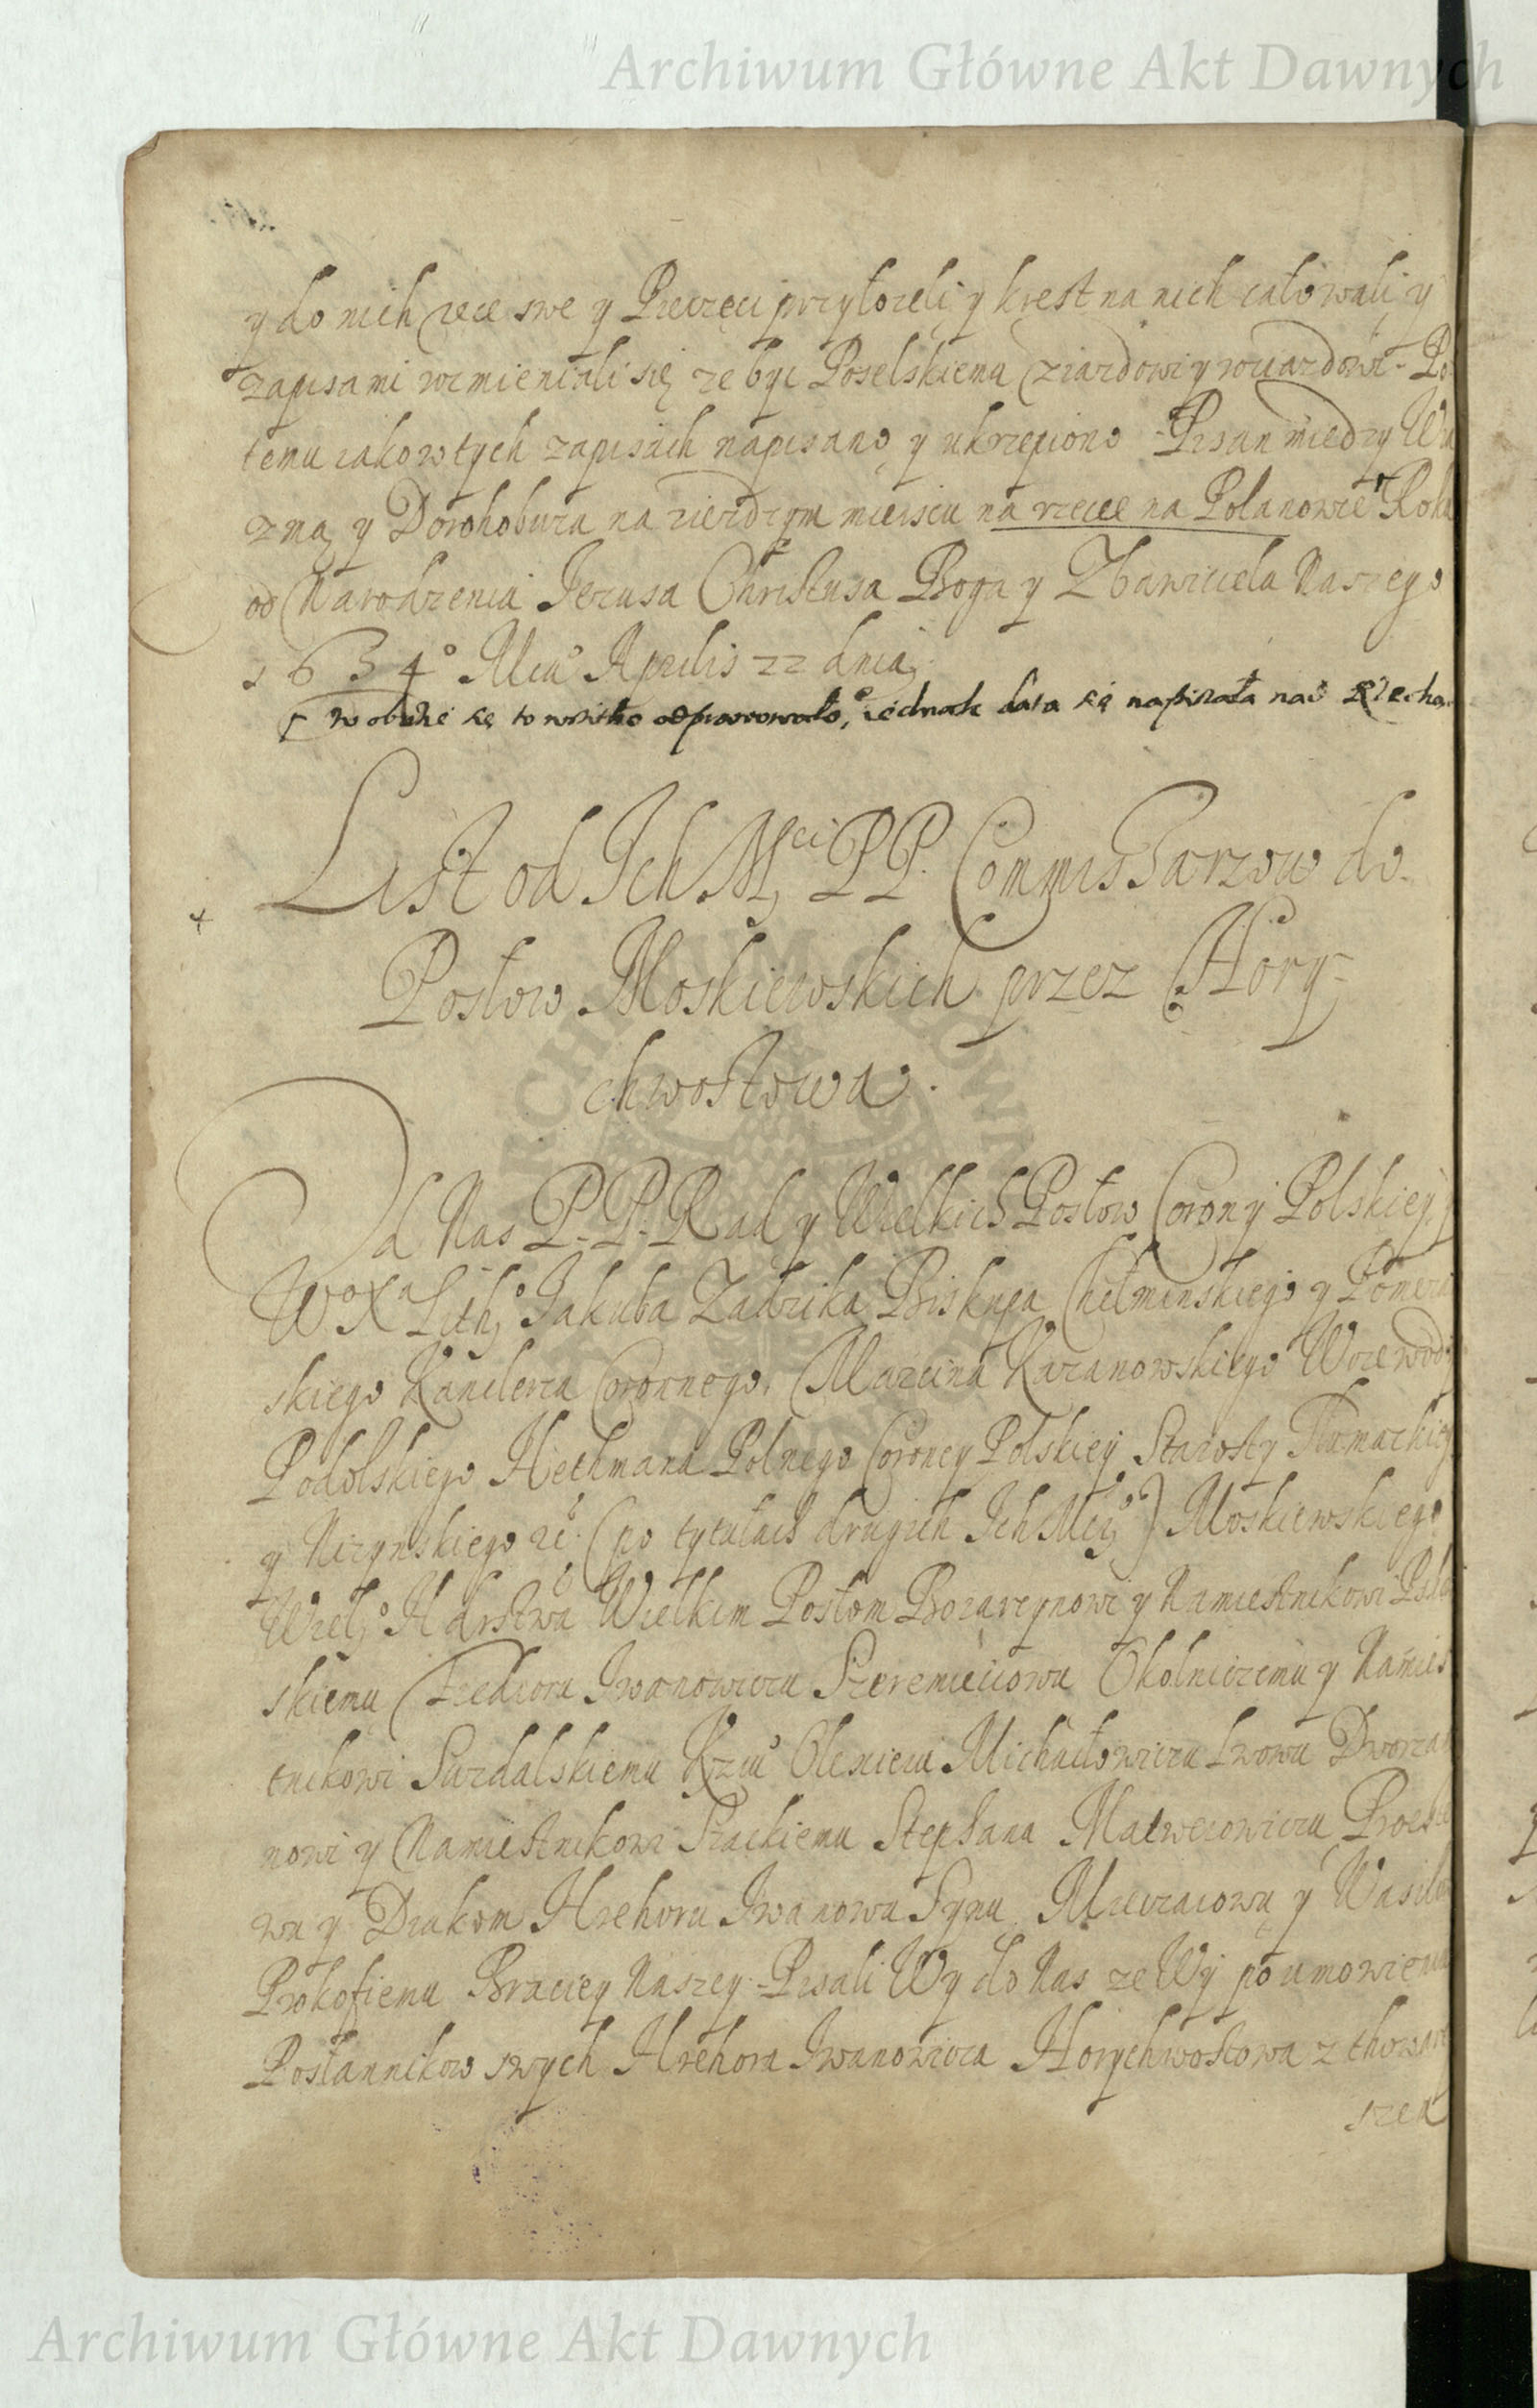 Archiwum Główne Akt Dawnych
y do nich ręce swe y Pieczęci przyłozeli y krest na nich całowali y
zapisami wimieniali się ze byc Poselskiemu zjazdowi y rozjazdowi - Po
temu iako w tych zapisach napisano y ukrzepiono - Pisan miedzy Wia
zmą y Dorohobuza na ziezdzym mieiscu na rzecce na Polanowie Roku
od Narodzenia Jezusa Christusa Boga y Zbawiciela Naszego
1634° Mca Aprilis 22 dnia
się to wszitko odprawowało, iednak data się napisała nad Rzeczką
List od Ich Mci PP. Commissarzow do
Posłow Moskiewskich przez Hory-
chwostowa.
Od Nas P. P. Rad y Wielkich Posłow Corony Polskiey y
W° X° Lith° Jakuba Zadzika Biskupa Chełminskiego y Pomezan
skiego Kanclerza Coronnego, Marcina Kazanowskiego Woiewody
Podolskiego Hethmana Polnego Corony Polskiey Starosty Tłumackie
y Nizynskiego etc. (po tytułach drugich Ich Mciow) Moskiewskiego
Wiel° Harstwa Wielkim Posłom Boiarzynowi y Namiestnikowi Psko
skiemu Fiedioru Iwanowiczu Szeremieciowu Okolniczemu y Namies
tnikowi Suzdalskiemu Kziu Olexieiu Michaiłowiczu Lwowu Dworza
nowi y Namiestnikowi Szackiemu Stephanu Matweiowiczu Proeste
wu y Diakom Hrehoru Iwanowu Synu Nieczaiowu y Wasilu
Prokofiemu Braciey Naszey - Pisali Wy do Nas ze Wy po umowieniu
Posłannikow swych Hrehora Iwanowicza Horychwostowa z thowarz
szen
Archiwum Główne Akt Dawnych